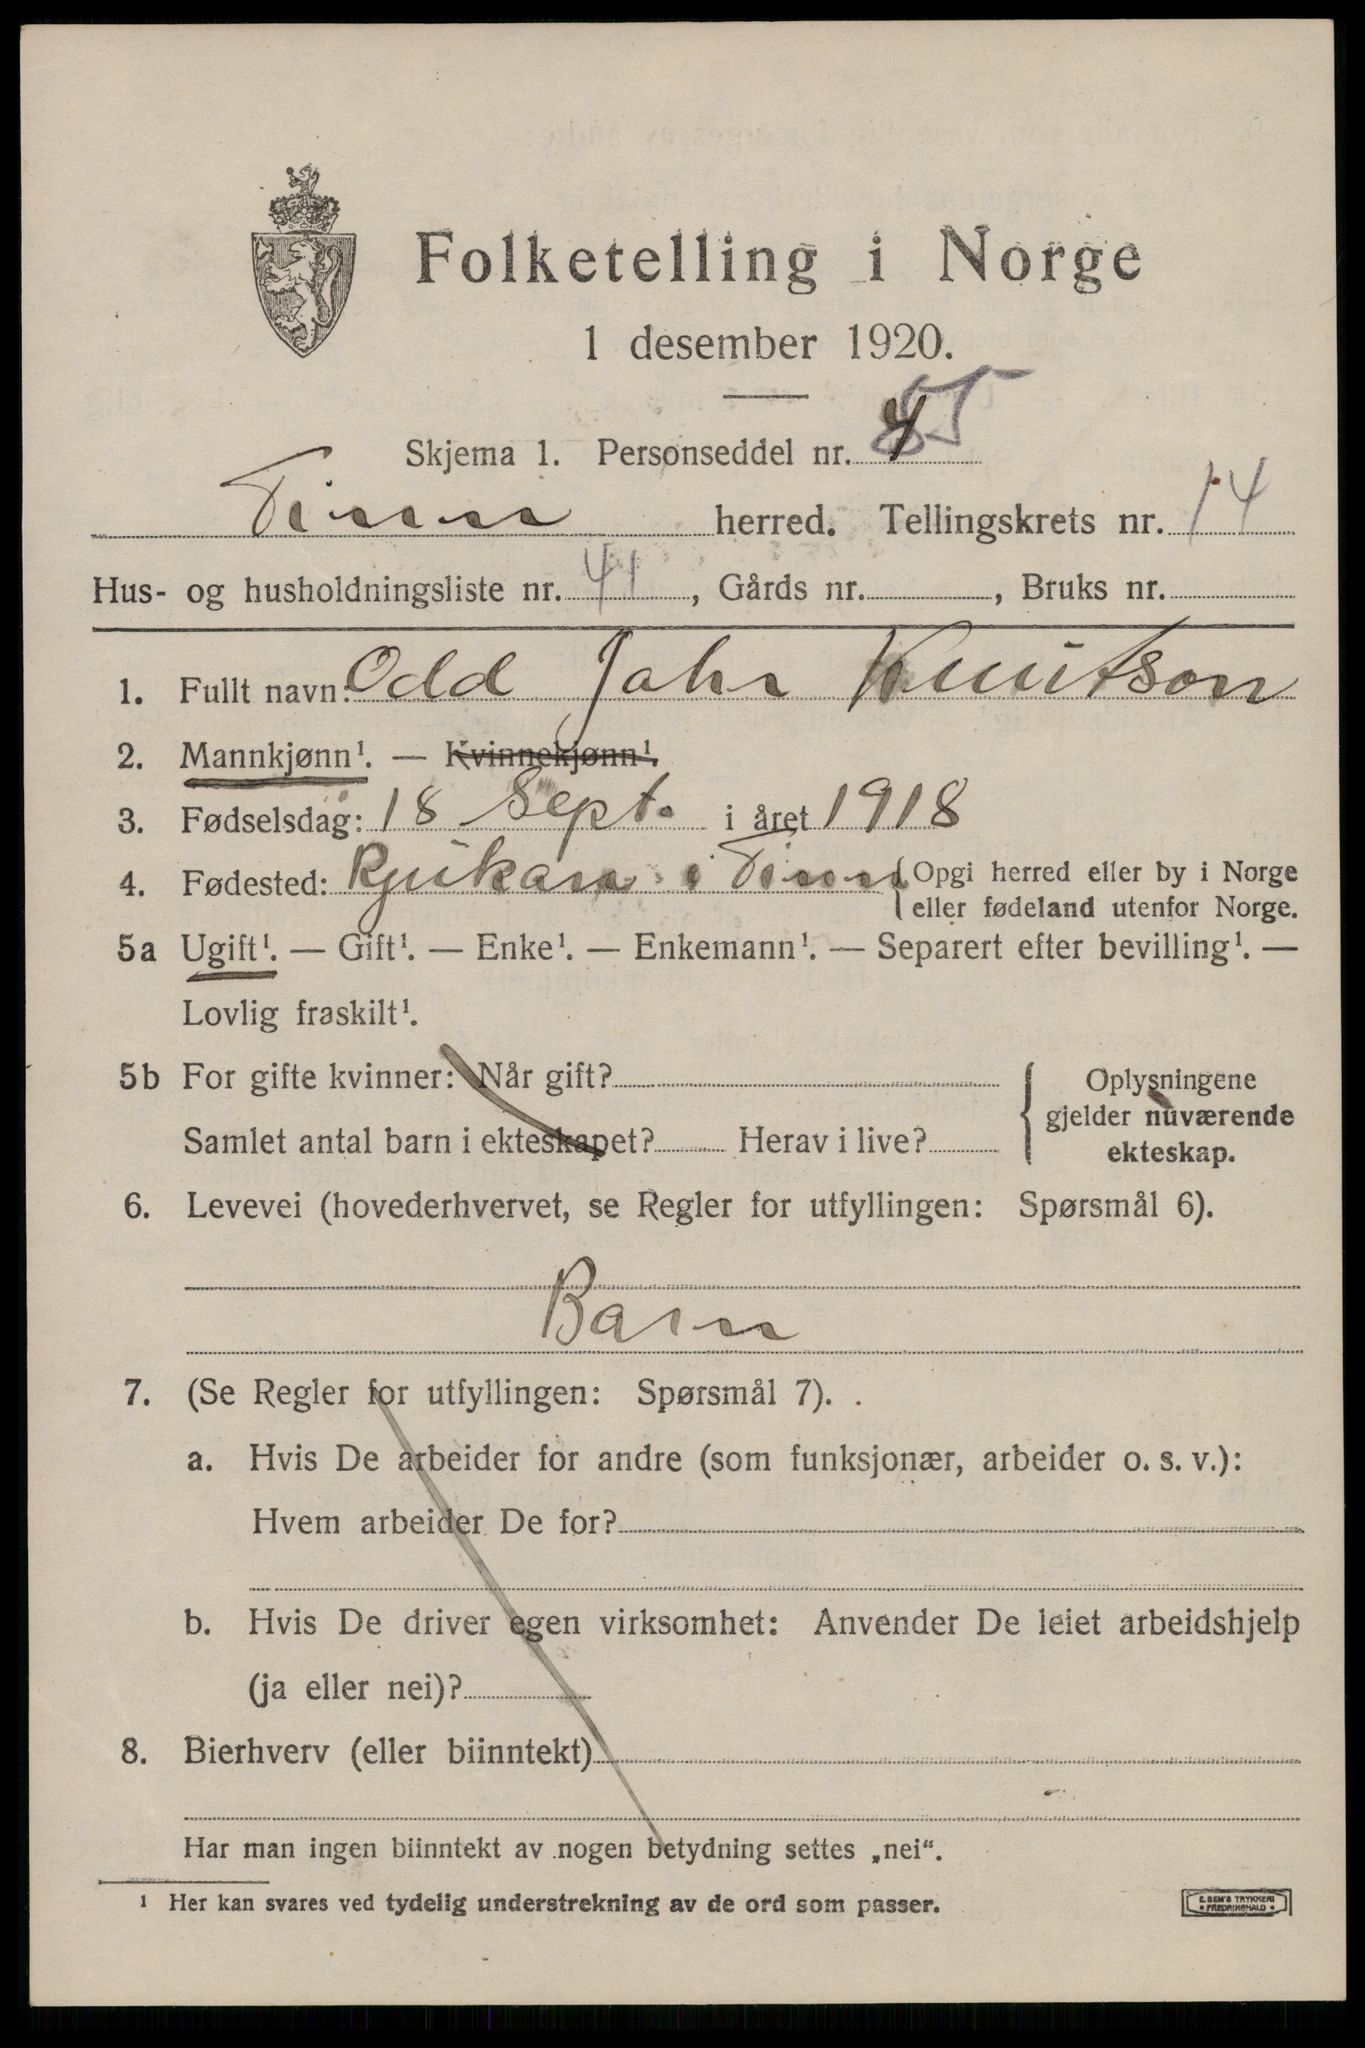 Folketelling i Norge
1 desember 1920.
Skjema 1. Personseddel nr. 4
Tinn herred. Tellingskrets nr. 14
Hus- og husholdningsliste nr. 41, Gårds nr. , Bruks nr.
1. Fullt navn: Odd John Knutson
2. Mannkjønn¹. — Kvinnekjønn¹.
3. Fødselsdag: 18 Sept. i året 1918
4. Fødested: Rjukan i Tinn { Opgi herred eller by i Norge
eller fødeland utenfor Norge.
5a Ugift¹. — Gift¹. — Enke¹. — Enkemann¹. — Separert efter bevilling¹. —
Lovlig fraskilt¹.
5b For gifte kvinner: Når gift?
Samlet antal barn i ekteskapet? Herav i live?
Oplysningene
gjelder nuværende
ekteskap.
6. Levevei (hovederhvervet, se Regler for utfyllingen: Spørsmål 6).
Barn
7. (Se Regler for utfyllingen: Spørsmål 7).
a. Hvis De arbeider for andre (som funksjonær, arbeider o. s. v.):
Hvem arbeider De for?
b. Hvis De driver egen virksomhet: Anvender De leiet arbeidshjelp
(ja eller nei)?
8. Bierhverv (eller biinntekt)
Har man ingen biinntekt av nogen betydning settes „nei“.
¹ Her kan svares ved tydelig understrekning av de ord som passer.
E. SEM'S TRYKKERI
FREDRIKSHALD